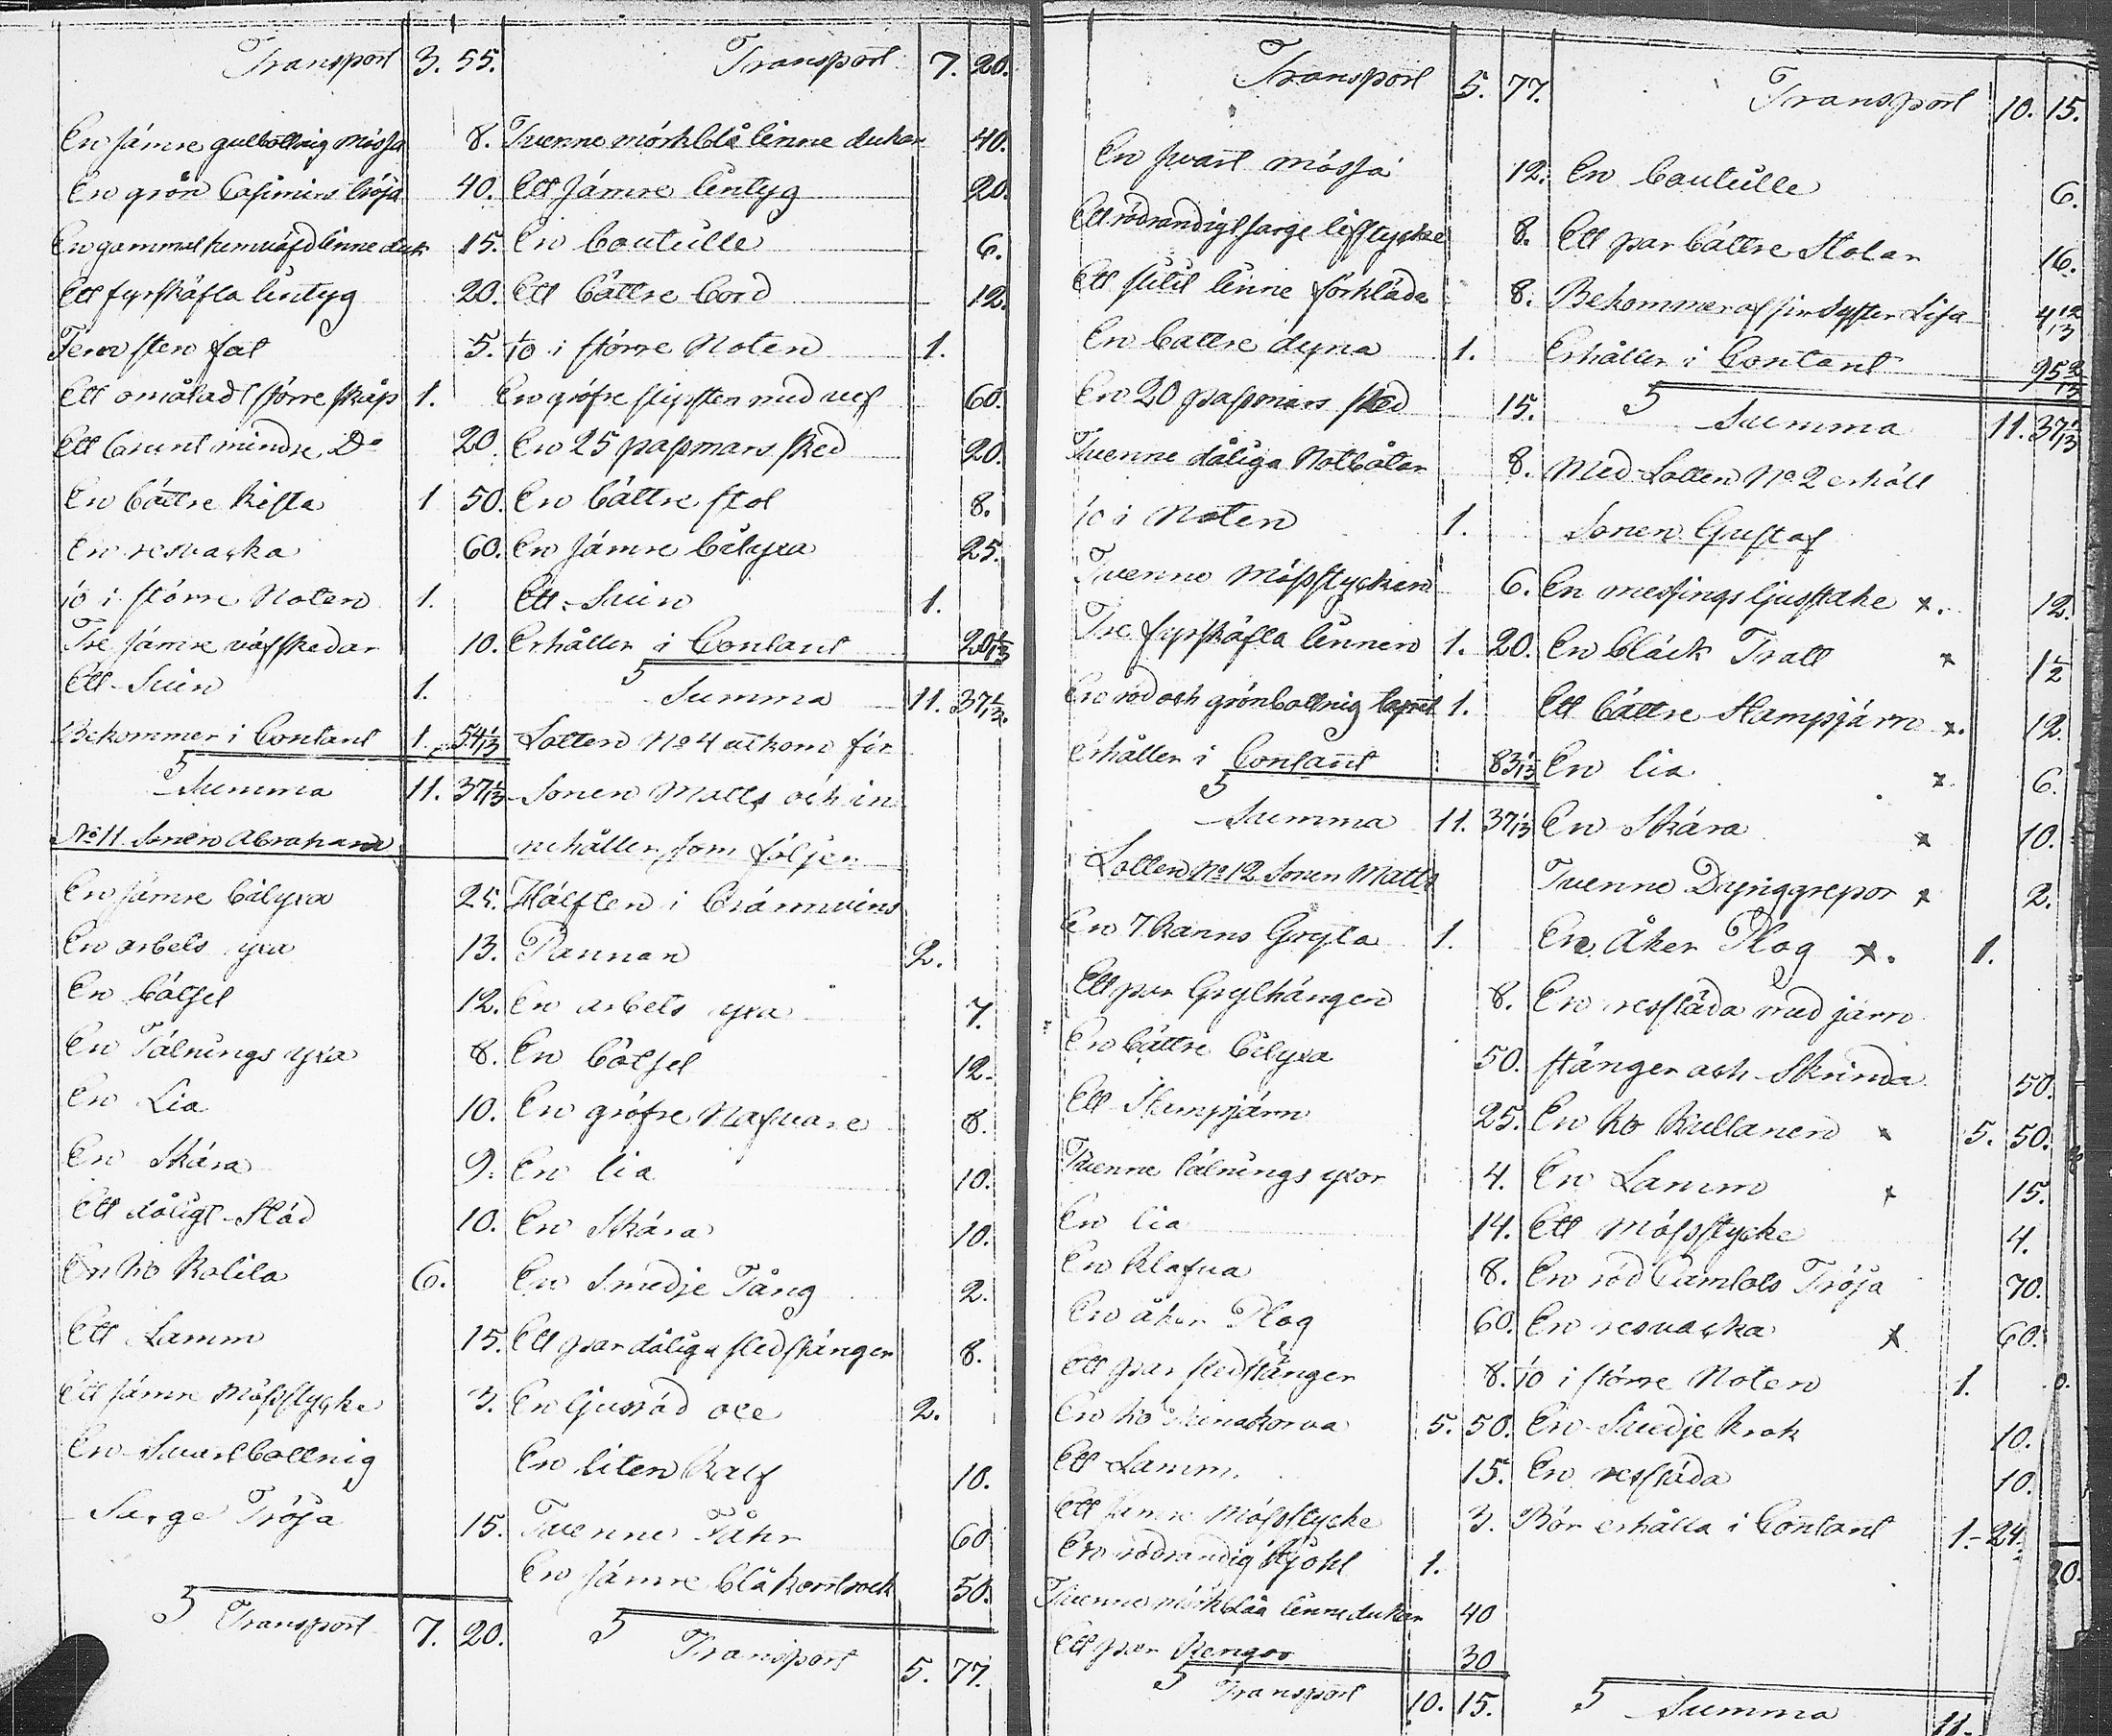 Transport 3. 55.
En sämre gulbottnig Mössa 8.
En grön Casimirs tröja 40.
En gammal hemväfd linne duk 15.
Ett fyrskäfta lintyg 20.
Fem sten fat 5.
Ett omåladt större skåp 1.
Ett brunt mindre Do 20.
En bättre kista 1 50.
En resväska 60.
1/10 i större Noten 1.
Tre sämre väfskedar 10.
Ett Svin 1.
Bekommer i Contant 1. 54 1/13
Summa 11. 37 1/13
No 11 Sonen Abraham
En sämre bilyxa 25.
En arbets yxa 13.
En bötsel 12.
En Tälnings yxa 8.
En Lia 10.
En Skära 9.
Ett dåligt Städ 10.
En ko Kolila 6.
Ett Lamm 15.
Ett sämre Mösstycke 3.
En Svartbottnig
Sarge Tröja 15.
Transport 7. 20.
Transport 7. 20.
Tvenne mörkblå linne dukar 40.
Ett sämre lintyg 20.
En boutulle 6.
Ett bättre bord 12.
1/10 i större Noten 1.
En gröfre slipsten med vef 60.
En 25 pasmars sked 20.
En bättre stol 8.
En sämre bilyxa 25.
Ett Svin 1.
Erhåller i Contant 20 1/13
Summa 11. 37 1/13.
Lotten No 4 utkom för
Sonen Matts och in
nehåller som följer
Hälften i bränvins
Pannan 2.
En arbets yxa 7.
En bötsel 12.
En gröfre Nafvare 8.
En lia 10.
En Skära 10.
En Smedje Tång 2.
Ett par dåliga sledstänger 8.
En ljusröd oxe 2.
En liten Kalf 10.
Tvenne Fåhr 60
En sämre blå kortrock 50.
Transport 5. 77.
Transport 5. 77.
En svart mössa 12.
Ett rödrandigt sarge lifstycke 8.
Ett slitit linne förkläde 8.
En bättre dyna 1.
En 20 pasmars sked 15.
Tvenne dåliga Notbåtar 8.
1/10 i Noten 1.
Tvenne Mösstycken 6.
Tre fyrskäfta linnen 1. 20.
En röd och grönbottnig 1.
erhåller i Contant 83 1/13
Summa 11. 37 1/13
Lotten No 12 Sonen Matts
En 7 kanns Gryta 1.
Ett par Grythängen 8.
En bättre bilyxa 50.
Ett Stampjärn 25.
Tvenne tälnings yxor 4.
En lia 14.
En Klafva 8.
En åker Plog 60.
Ett par sledstänger 8.
En ko Kunakorva 5. 50.
Ett Lamm. 15.
Ett sämre Mösstycke 3.
En rödrandig Kjohl 1.
Tvenne mörkblåa linnedukar 40
Ett par Kengor 30
Transport 10. 15.
Transport 10. 15.
En boutulle 6.
Ett par bättre Stolar 16.
Bekommer af sin Syster Lisa 4 12/13
Erhåller i Contant 95 2/13
Summa 11. 37 1/13
Med Lotten No 2 erhöll
Sonen Gustaf
En messings ljusstake x. 12.
En bläck Tratt x 1 1/2
Ett bättre Stampjärn x. 12.
En lia x. 6.
En Skära x 10.
Tvenne Dynggrepor x 2.
En Åker Plog x. 1.
En resslåda med järn
stänger och Skrinda 50.
En ko Kullanen x 5. 50.
En Lamm x 15.
Ett Mösstycke 4.
En röd Camlots Tröja 70.
En resväska x 60.
1/10 i större Noten 1.
En Smedje krok 10.
En resslåda 10.
Bör erhålla i Contant 1. 24.
20.
Summa 11.